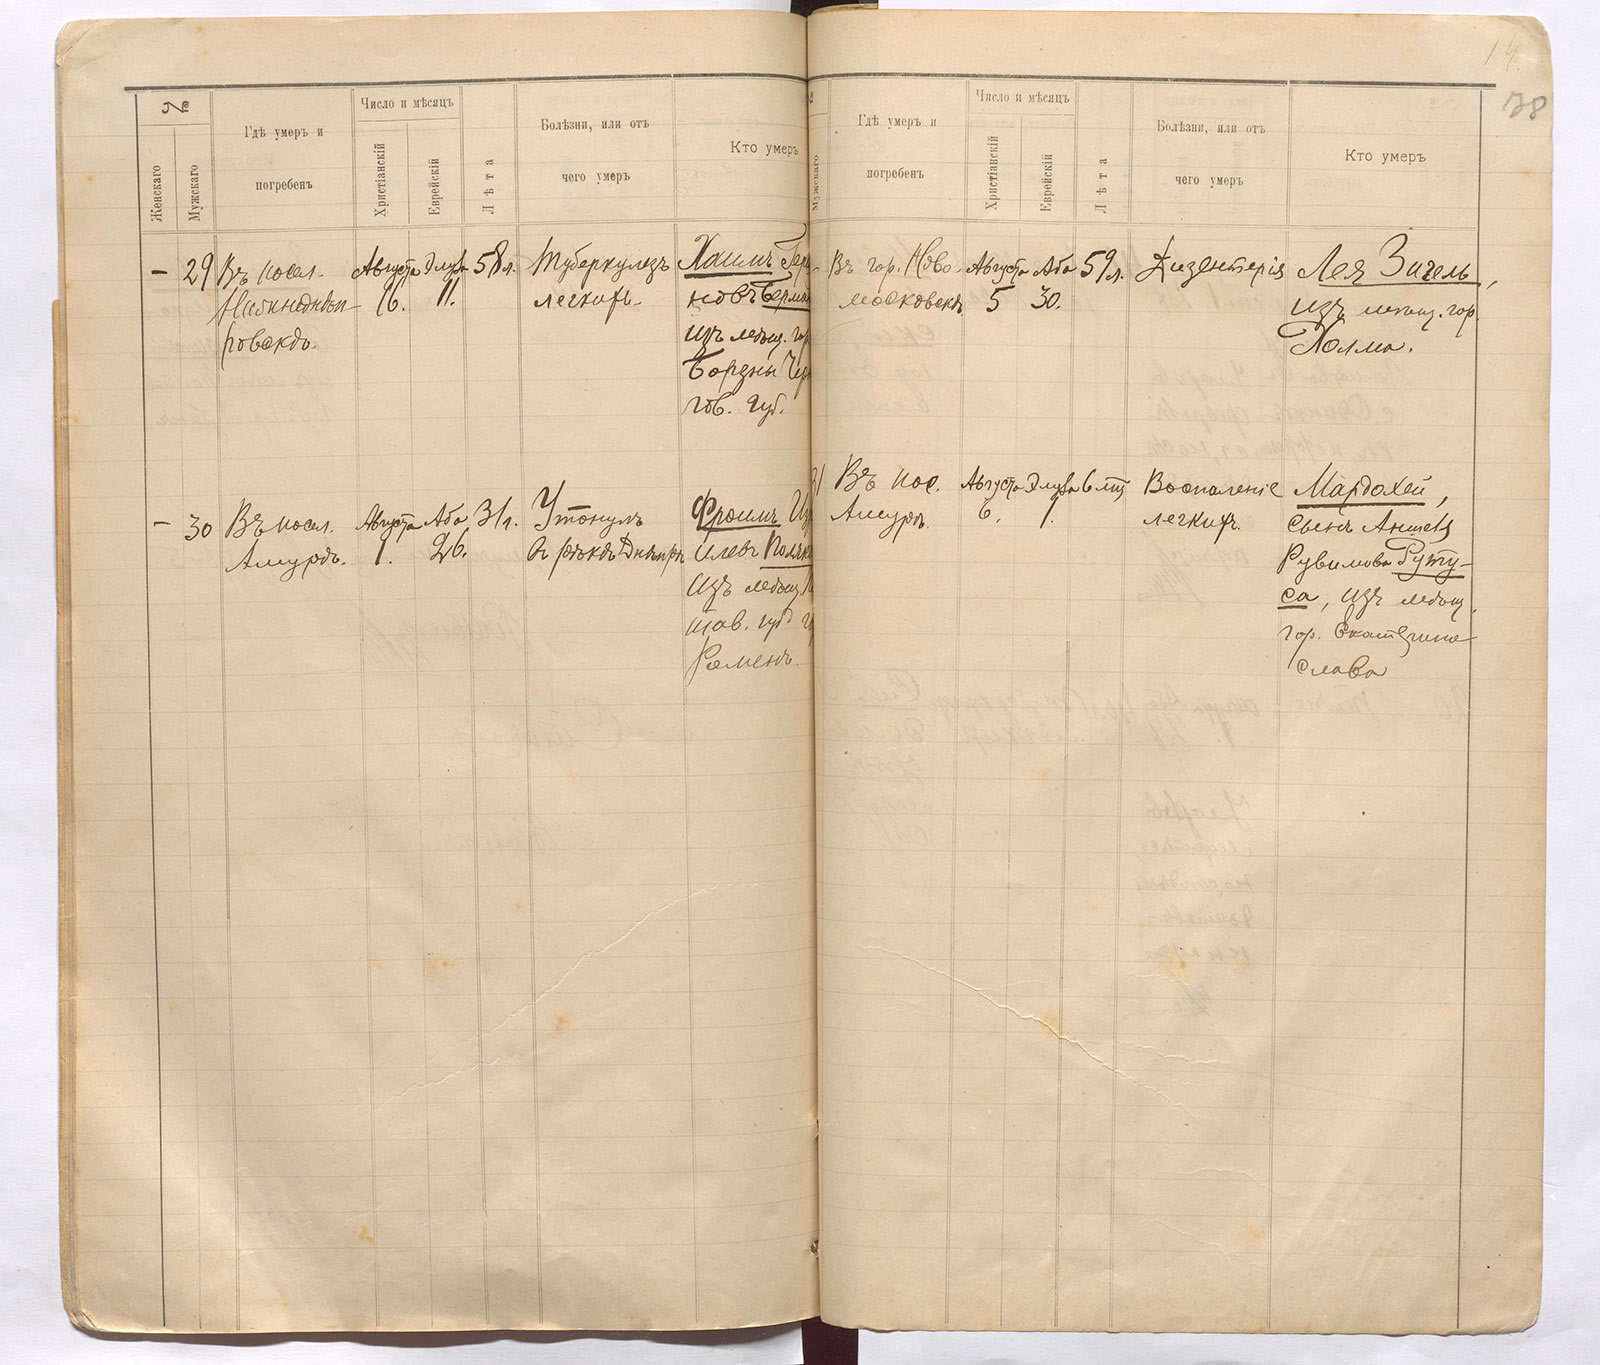 14.
38
№
Женскаго
Мужскаго
Гдѣ умеръ и
погребенъ
Число и мѣсяцъ
Христіанскій
Еврейскій
Лѣта
Болѣзни, или отъ
чего умеръ
Кто умеръ
– 29
Въ посел.
ровскѣ.
Августа
16.
Элула
11.
58 л.
Туберкулезъ
легкихъ.
Хаимъ
новъ
изъ мѣщ. гор
Борзны
гов. губ.
– 30
Въ посел.
Амурѣ.
Августа
1.
Аба
26.
31 г.
Утонулъ
въ рѣкѣ Днѣпрѣ
Фроимъ
илевъ
изъ мѣщ.
тав. губ
Роменъ.
Мужскаго
Гдѣ умеръ и
погребенъ
Число и мѣсяцъ
Христіанскій
Еврейскій
Лѣта
Болѣзни, или отъ
чего умеръ
Кто умеръ
Въ гор. Ново-
московскѣ
Августа
5
Аба
30.
59 л.
Дизентерія
Лея Зигель,
изъ мѣщ. гор.
Холма.
31
Въ пос.
Амурѣ.
Августа
6.
Элула
1.
6 мц
Воспаленіе
легкихъ.
Мардохей,
сынъ Аншеля
Рувимова Руту-
са, изъ мѣщ.
гор. Екатерино-
слава